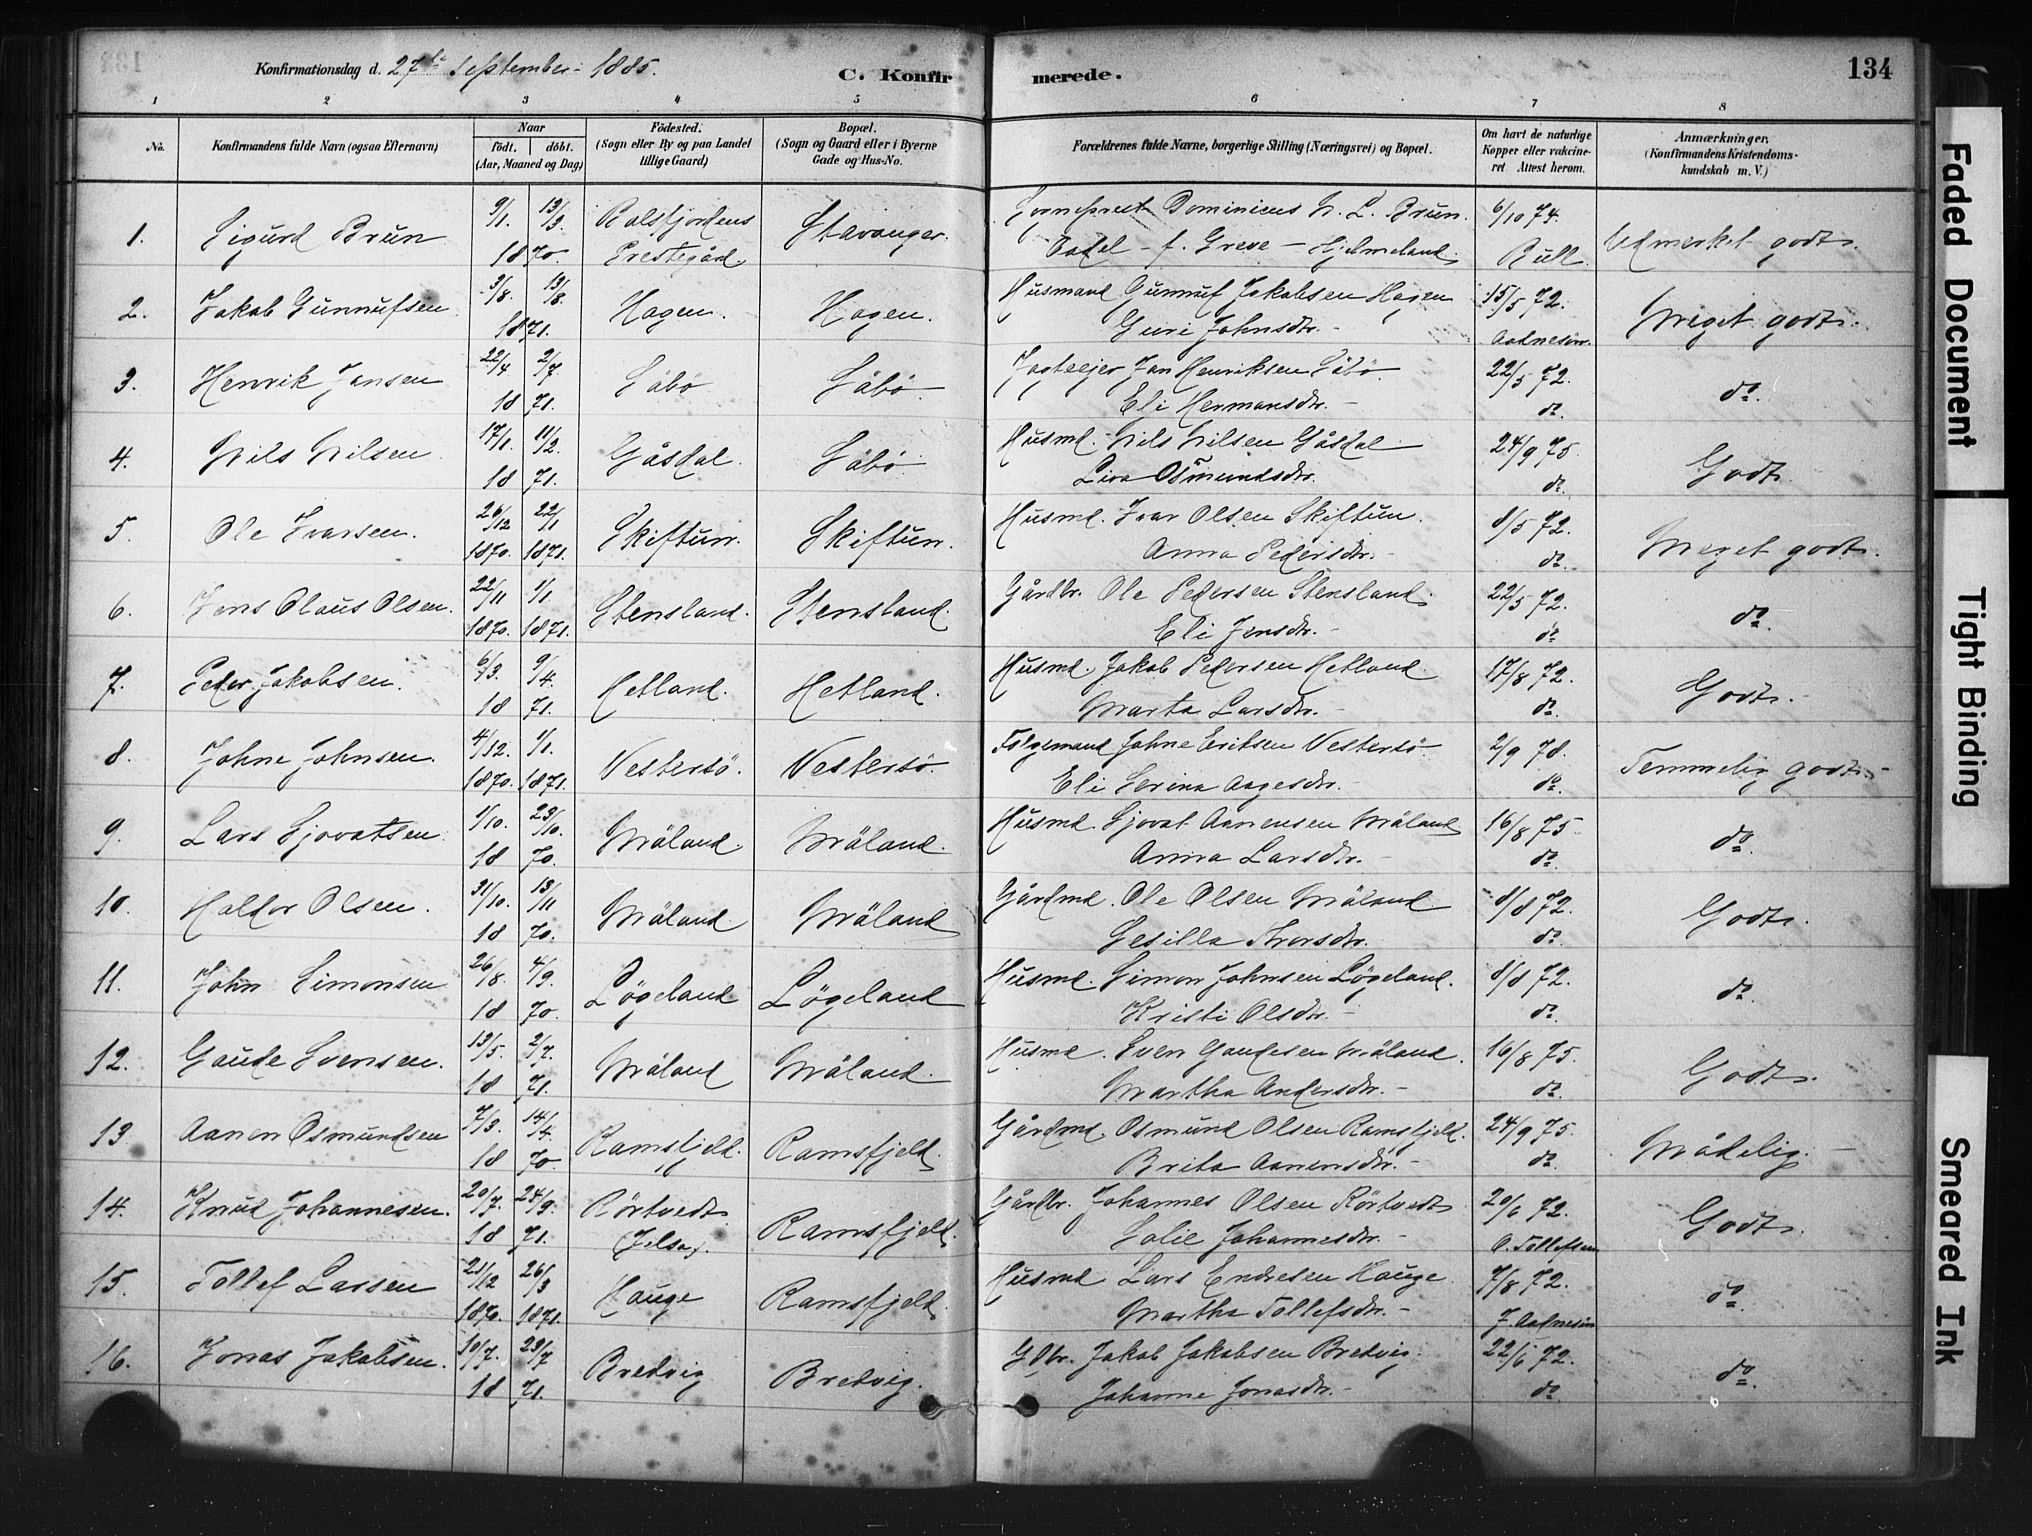 Konfirmationsdag d. 27de September 1885.
C. Konfirmerede.
134
1 2 3 4 5 6 7 8
No.
Konfirmandens fulde Navn (ogsaa Efternavn)
Naar
födt. döbt.
(Aar, Maaned og Dag)
Födested.
(Sogn eller By og paa Landet
tillige Gaard)
Bopæl.
(Sogn og Gaard eller i Byerne
Gade og Hus-No.
Forældrenes fulde Navne, borgerlige Stilling (Næringsvei) og Bopæl.
Om havt de naturlige
Kopper eller vakcine-
ret Attest herom.
Anmærkninger.
(Konfirmandens Kristendoms-
kundskab m. V.)
1. Sigurd Brun 9/1 13/3 1870. Balsfjordens Prestegård. Stavanger. Sogneprest Dominicus N. L. Brun. f. Greve – Hjelmeland. 6/10 74. Bull. Udmerket godt.
2. Jakob Gunnufsen 3/8. 13/8. 1871. Hagen. Hagen. Husmand Gunnuf Jakobsen Hagen Guri Johnsdtr. 15/5 72. Aadnesen. Meget godt.
3. Henrik Jansen 22/4 2/7. 1871. Såbö Såbö. Jagteejer Jan Henriksen Såbö Eli Hermansdtr. 22/5 72. do. do.
4. Nils Nilsen 17/1. 11/2. 1871. Gåsdal. Såbö Husmd. Nils Nilsen Gåsdal Liva Osmundsdtr. 24/9 75 do. Godt.
5. Ole Ivarsen. 26/12 22/1 1870. 1871. Skiftun. Skiftun. Husmd. Ivar Olsen Skiftun. Anna Pedersdtr. 8/5 72. do. Meget godt.
6. Jens Olaus Olsen. 22/11 1/1. 1870. 1871. Stensland. Stensland. Gårdbr. Ole Pedersen Stensland. Eli Jensdtr. 22/5 72. do do.
7. Peder Jakobsen. 6/3. 9/4. 1871. Hetland. Hetland. Husmd. Jakob Pedersen Hetland. Marta Larsdtr. 17/8 72. do. Godt.
8. Johne Johnsen. 4/12. 1/1. 1870. 1871. Vestersö. Vestersö. Fölgemand Johne Eriksen Vestersö Eli Serina Aagesdtr. 2/9 78. do. Temmelig godt.
9. Lars Sjovatsen. 1/10. 23/10. 1870. Måland. Måland. Husmd. Sjovat Aanensen Måland Anna Larsdtr. 16/8 75. do. do.
10. Haldor Olsen. 31/10. 13/11 1870. Måland. Måland Gårdmd. Ole Olsen Måland Gesilla Thorsdtr. 8/8 72. do. Godt.
11. John Simonsen 26/8. 4/9. 1870. Løgeland Løgeland Husmd. Simon Johnsen Løgeland. Kristi Olsdtr. 8/8 72. do. do.
12. Gaude Svensen. 13/5. 2/7. 1871. Måland Måland. Husmd. Sven Gaudesen Måland. Martha Andersdtr. 16/8 75. do. Godt.
13. Aanen Osmundsen 7/3. 14/4. 1870. Ramsfjeld. Ramsfjeld. Gårdmd. Osmund Olsen Ramsfjeld. Brita Aanensdtr. 24/9 75. do. Mådelig.
14. Knud Johannesen. 20/7. 24/9. 1871. Rörtvedt (Jelsa). Ramsfjeld. Gårdbr. Johannes Olsen Rörtvedt Johannesdtr. 20/6 72. O. Tollefsen Godt.
15. Tollef Larsen 21/12 26/3 1870. 1871. Hauge Ramsfjeld. Husmd Lars Endresen Hauge. Martha Tollefsdtr. 7/8 72. J. Aadnesen do.
16. Jonas Jakobsen. 10/7. 23/7 1871. Bredvig Bredvig. Gdbr. Jakob Jakobsen Bredvig. Johanne Jonasdtr. 22/6 72. do do.
Faded Document
Tight Binding
Smeared Ink